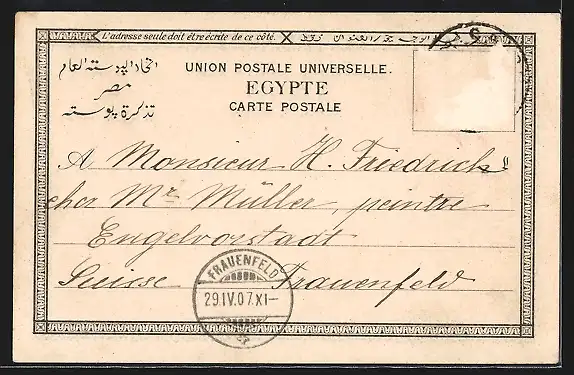 L'adresse seule doit être écrite de ce côté.
UNION POSTALE UNIVERSELLE.
اتحاد البوسته العام
EGYPTE
مصر
CARTE POSTALE
تذكرة بوسته
A Monsieur H. Friedrich
cher Mr. Müller, peintre
Engelvorstadt
Suisse Frauenfeld
FRAUENFELD
29.IV.07.XI–